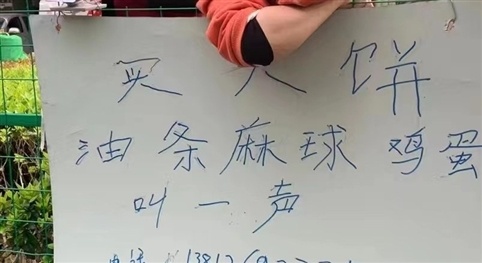 买大饼
油条麻球鸡蛋
叫一声
电话